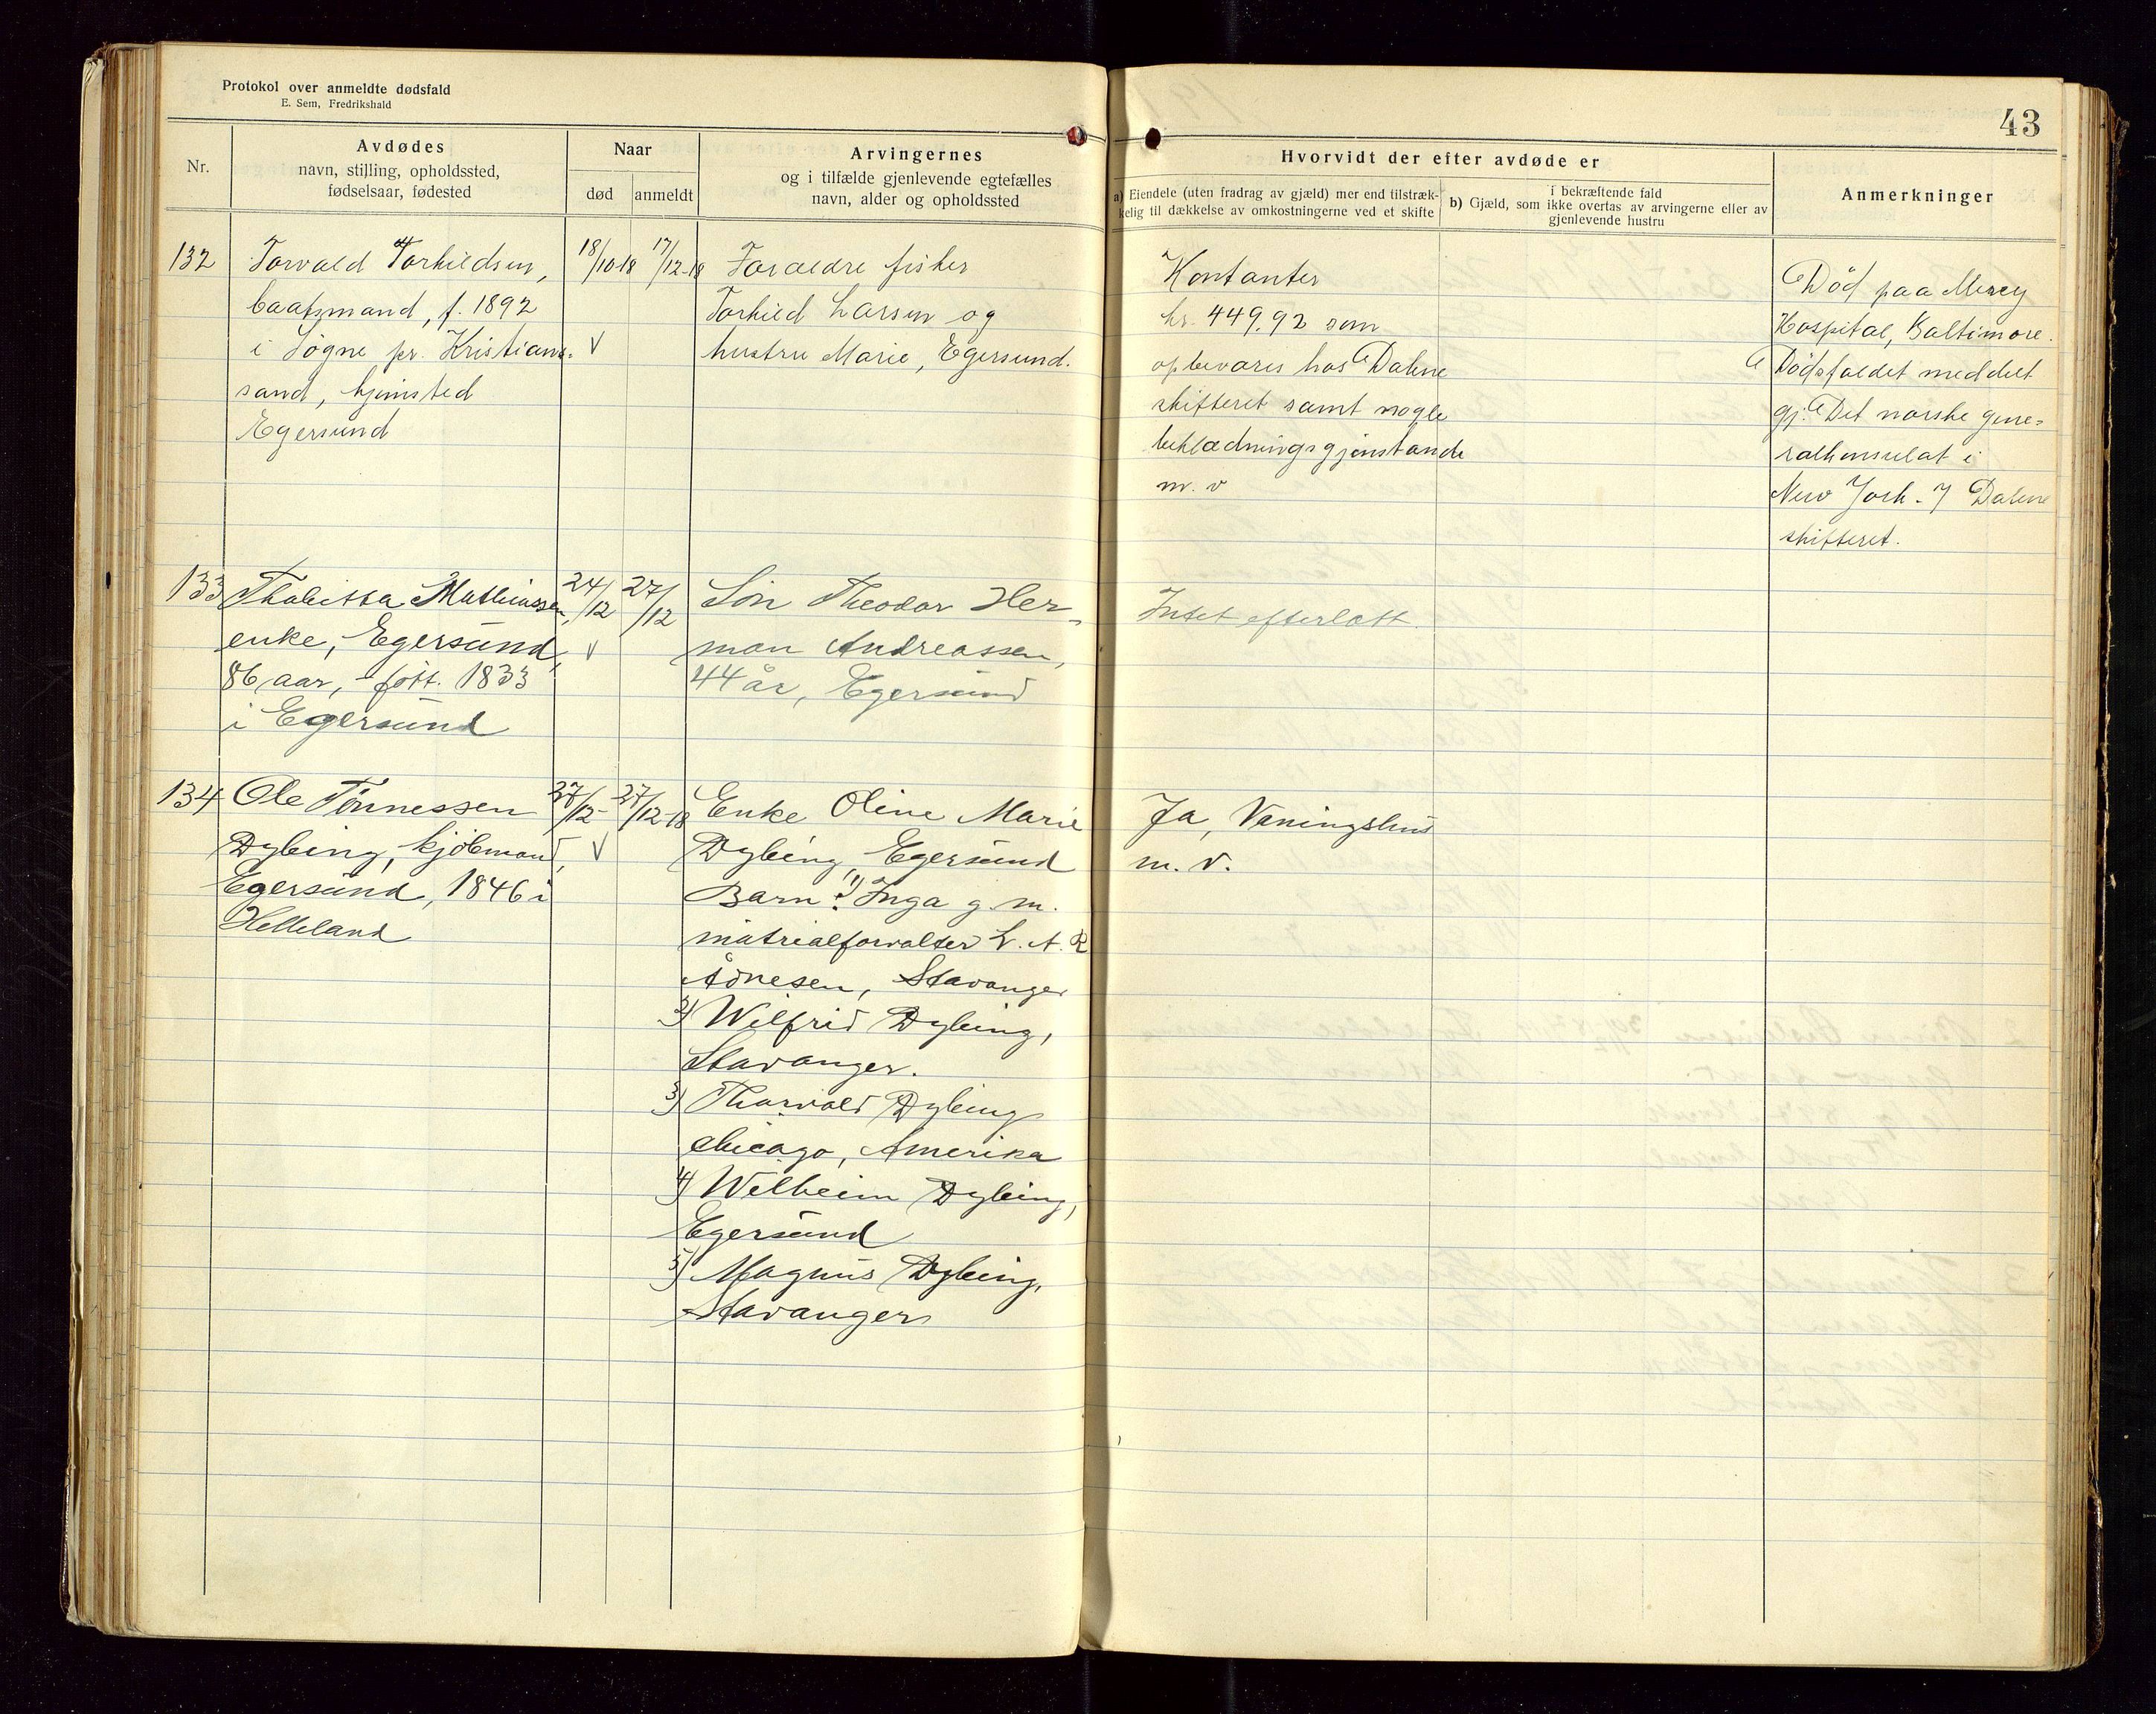 Protokol over anmeldte dødsfald
E. Sem, Fredrikshald
43
Nr.
Avdødes
navn, stilling, opholdssted,
fødselsaar, fødested
Naar
død
anmeldt
Arvingernes
og i tilfælde gjenlevende egtefælles
navn, alder og opholdssted
Hvorvidt der efter avdøde er
a) Eiendele (uten fradrag av gjæld) mer end tilstræk-
kelig til dækkelse av omkostningerne ved et skifte
i bekræftende fald
b) Gjæld, som ikke overtas av arvingerne eller av
gjenlevende hustru
Anmerkninger
132
Torvald Torkildsen,
baatsmand, f. 1892
i Søgne pr. Kristian-
sand, hjemsted
Egersund
18/10-18
17/12-18
Forældre fisker
Torkild Larsen og
hustru Marie, Egersund.
Kontanter
kr. 449,92 som
opbevares hos Dalene
skifteret samt nogle
beklædningsgjenstande
m. v
Død paa Mercy
Hospital, Baltimore.
Dødsfaldet meddelt
gj. Det norske gene=
ralkonsulat i
New York. 7 Dalene
skifteret.
133
Thalitta Mathiassen,
enke, Egersund,
86 aar, født. 1833
i Egersund
24/12
27/12
Søn Theodor Her-
man Andreassen,
44 år, Egersund
Intet efterlatt.
134
Ole Tönnessen
Dybing, kjöbmand,
Egersund, 1846 i
Helleland
27/12-18
Enke Oline Marie
Dybing, Egersund
Barn: 1) Inga g. m.
matrialforvalter L. A. R
Ådnesen, Stavanger
2) Wilfrid Dybing,
Stavanger.
3) Thorvald Dybing
Chicago, Amerika
4) Wilheim Dybing,
Egersund
5) Magnus Dybing,
Stavanger
Ja, Vaningshus
m. v.